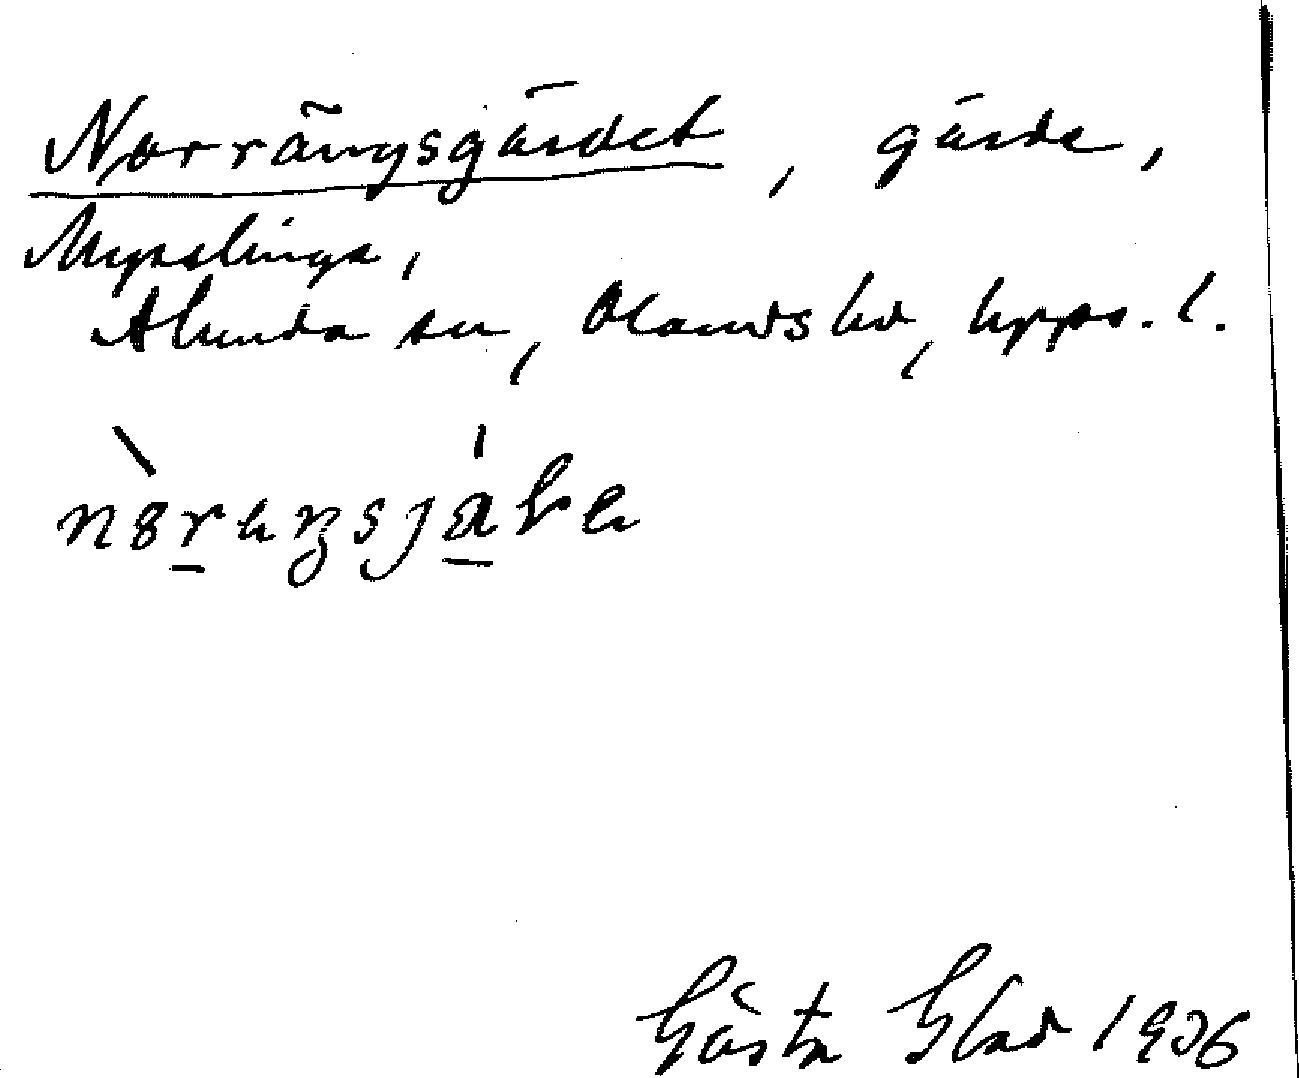 Norrängsgärdet, gärde,
Mysslinga,
Alunda sn, Olands hd, Upps. l.
Gösta Glad 1936